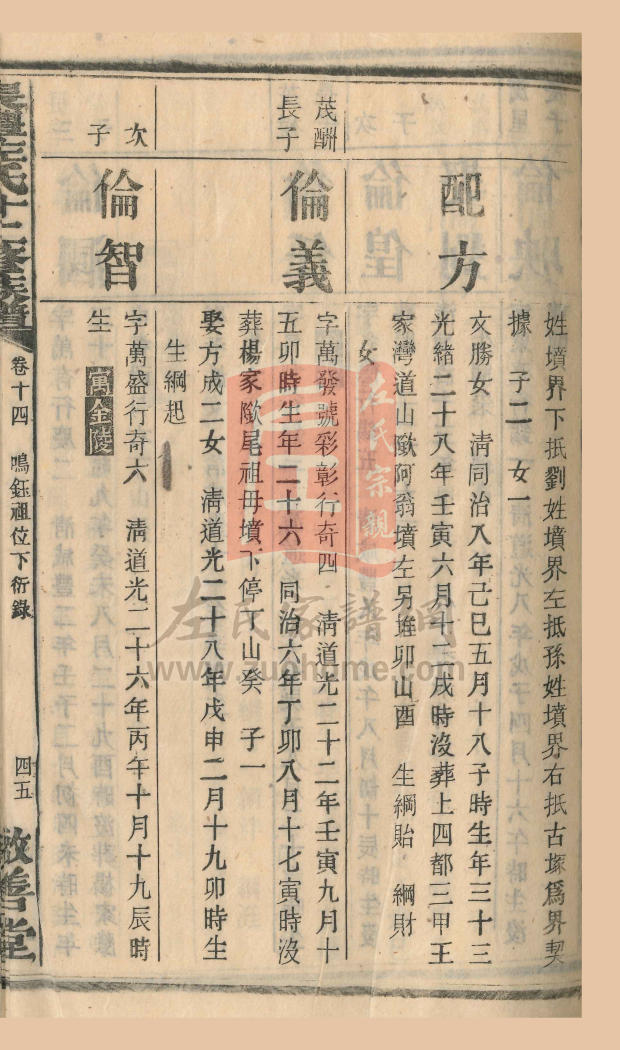 姓墳界下抵劉姓墳界左抵孫姓墳界右抵古塚爲界契
據 子二 女一
配方
文勝女 清同治八年己巳五月十八子時生年三十三
光緒二十八年壬寅六月十二戌時沒葬上四都三甲王
家灣道山阿翁墳左另堆卯山酉 生綱貽 綱財
女
茂酬
長子
倫義
字萬發號彩彰行奇四 清道光二十二年壬寅九月十
五卯時生年二十六 同治六年丁卯八月十七寅時沒
葬楊家尾祖母墳下停丁山癸 子一
娶方成二女 清道光二十八年戊申二月十九卯時生
生綱起
次子
倫智
字萬盛行奇六 清道光二十六年丙午十月十九辰時
生 寓金陵
左氏十二修族譜
卷十四 鳴鈺祖位下衍錄
四五
敬善堂
左氏宗親
左氏家譜網
www.zuohome.com